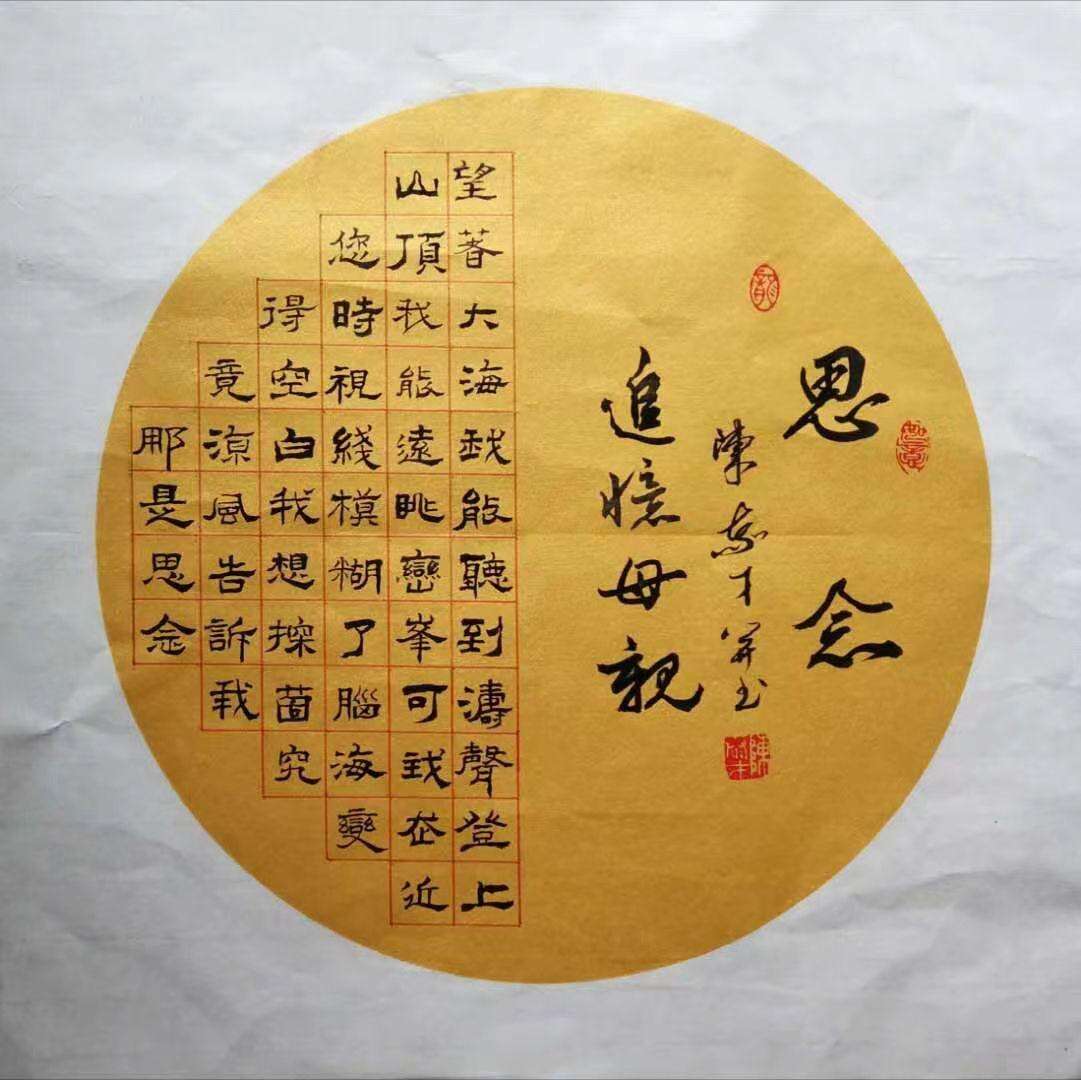 思念
如意
陳才并书
追憶母親
望著大海我能聽到濤聲登上
山頂我能遠眺巒峯可我在近
您時視綫模糊了腦海變
得空白我想探箇究
竟涼風告訴我
那是思念